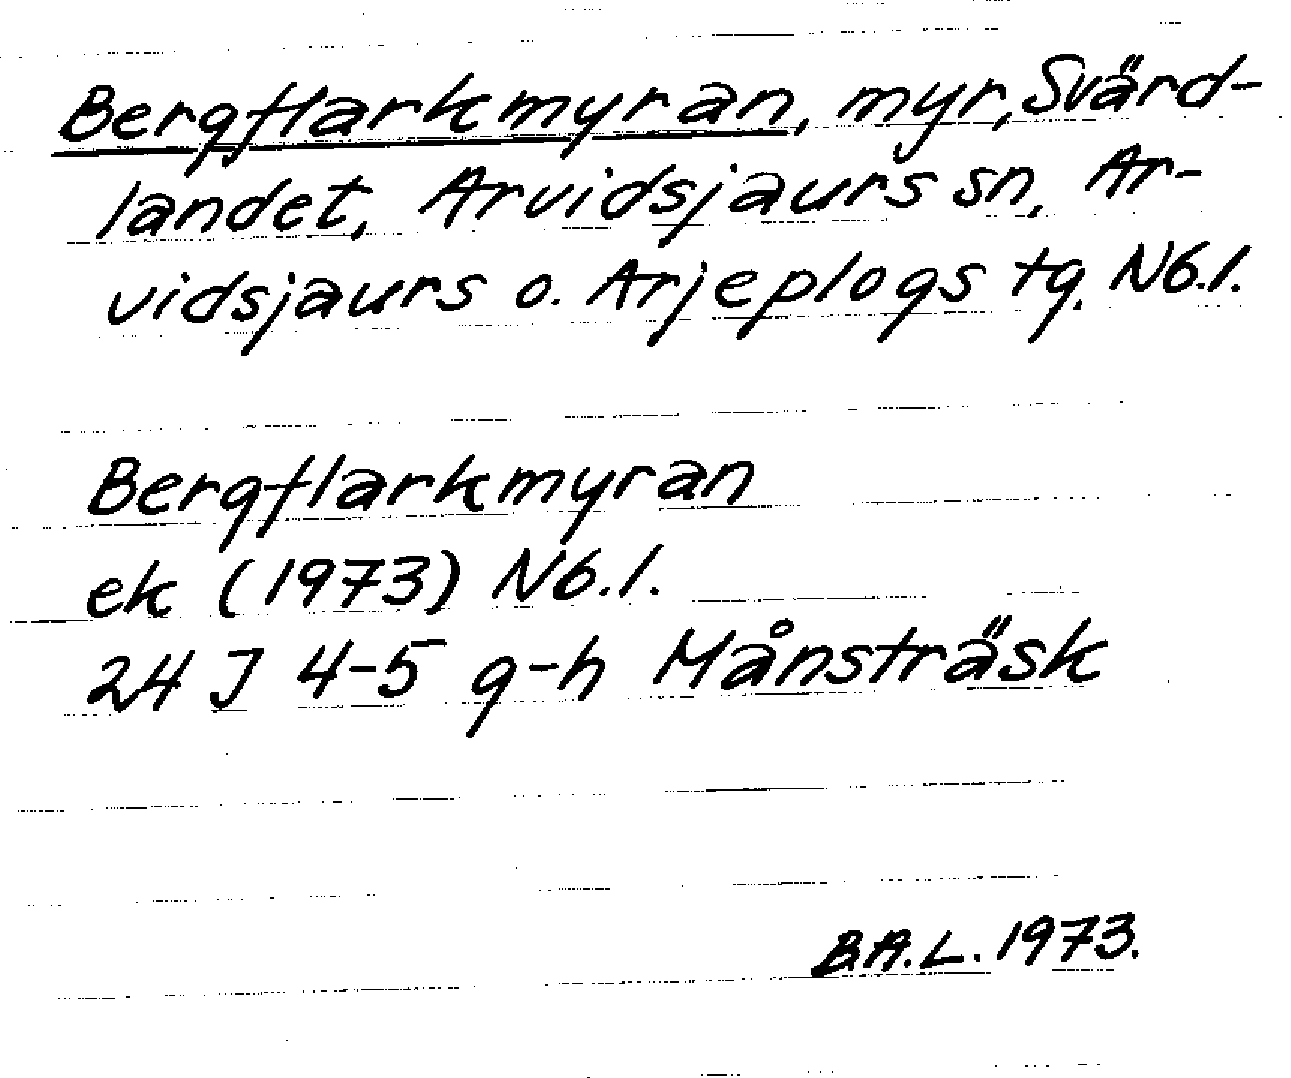 Bergflarkmyran, myr, Svärd-
landet, Arvidsjaurs sn, Ar-
vidsjaurs o. Arjeplogs tg. Nb.l.
Bergflarkmyran
ek (1973) Nb.l.
24 J 4-5 g-h Månsträsk
B.A.L. 1973.